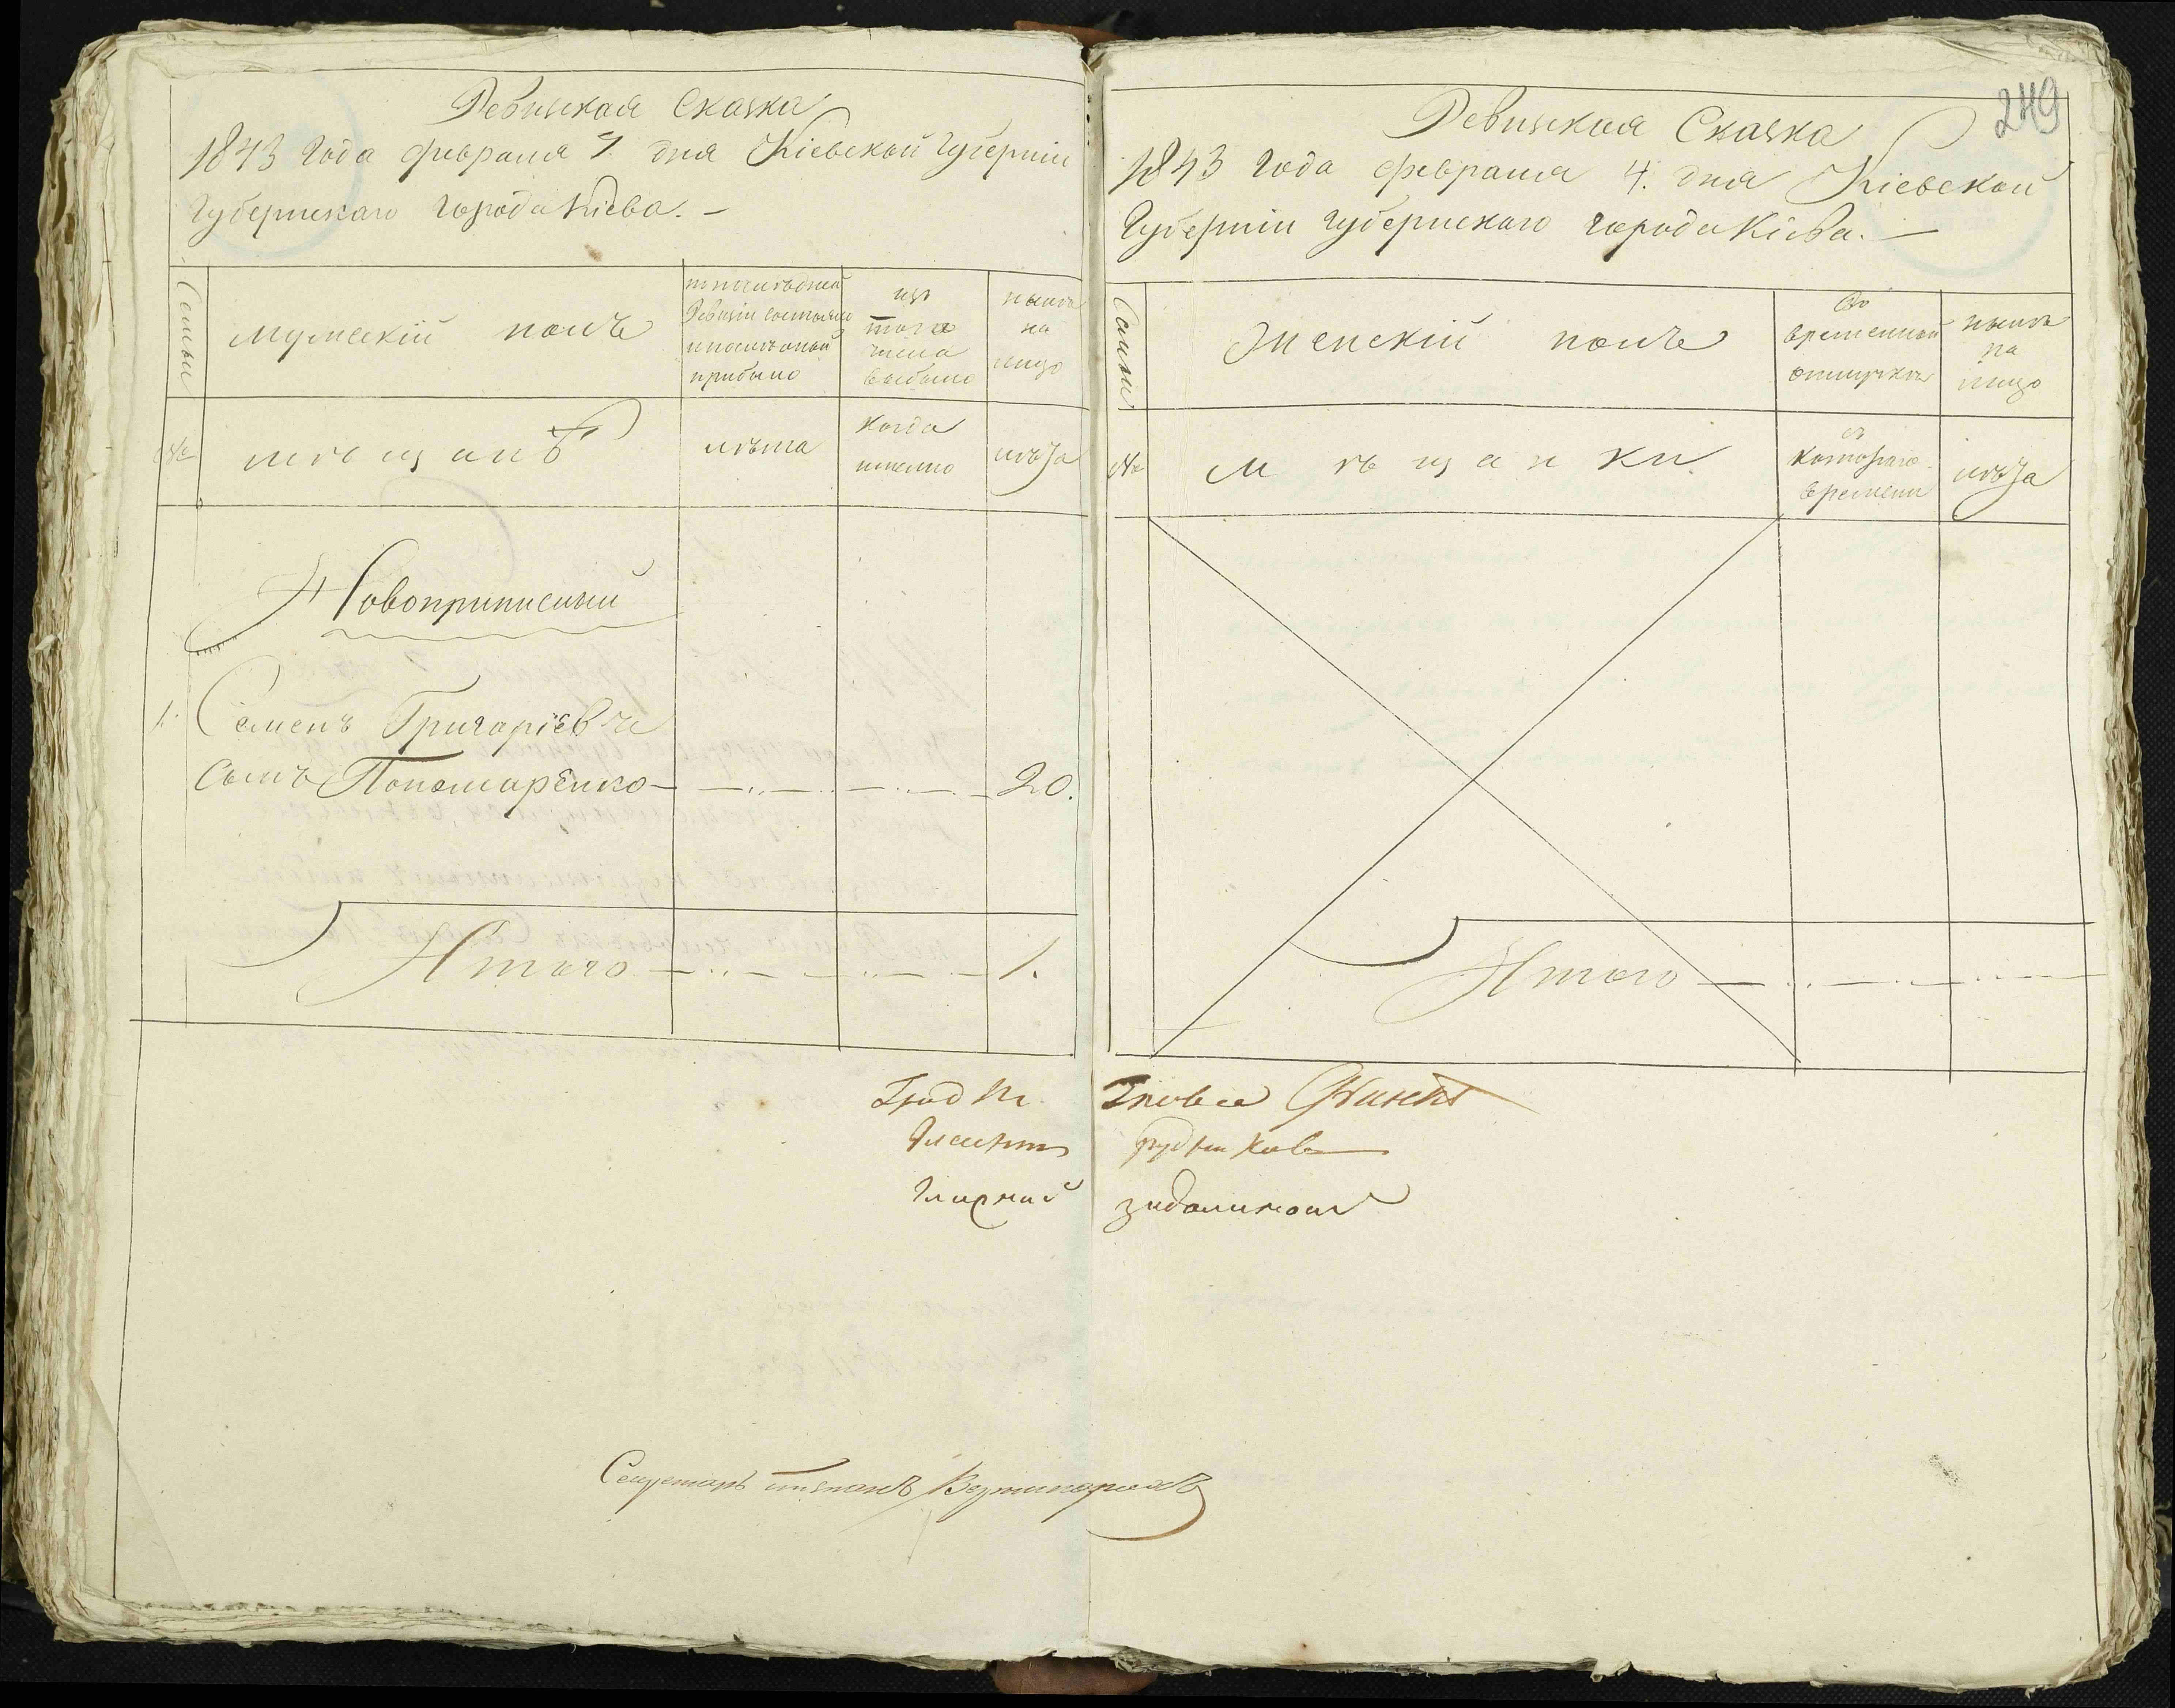 Ревизкая Сказка
1843 года февраля 4. дня Кіевской губерніи
Губернскаго города Кіева. –
Семьи
мужескій полъ
по последней
Ревизіи состояло
и после оной
прибыло
изъ
того
числа
выбыло
ныне
на
лицо
№
мѣщанѣ
лѣта
когда
именно
лѣта
Новоприписный
1. Семенъ Григоріевъ
сынъ Пономарѐнко 20.
Итого 1.
249
Ревизкая Сказка
1843 года февраля 4. дня Кіевской
Губерніи губернскаго города Кіева. –
Семьи
Женскій полъ
Во
временной
отлучкѣ
нынѣ
на
лицо
№
мѣщанки.
съ
котораго
времени
лѣта
Итого
Град
Гласный
Гласный
Секретарь